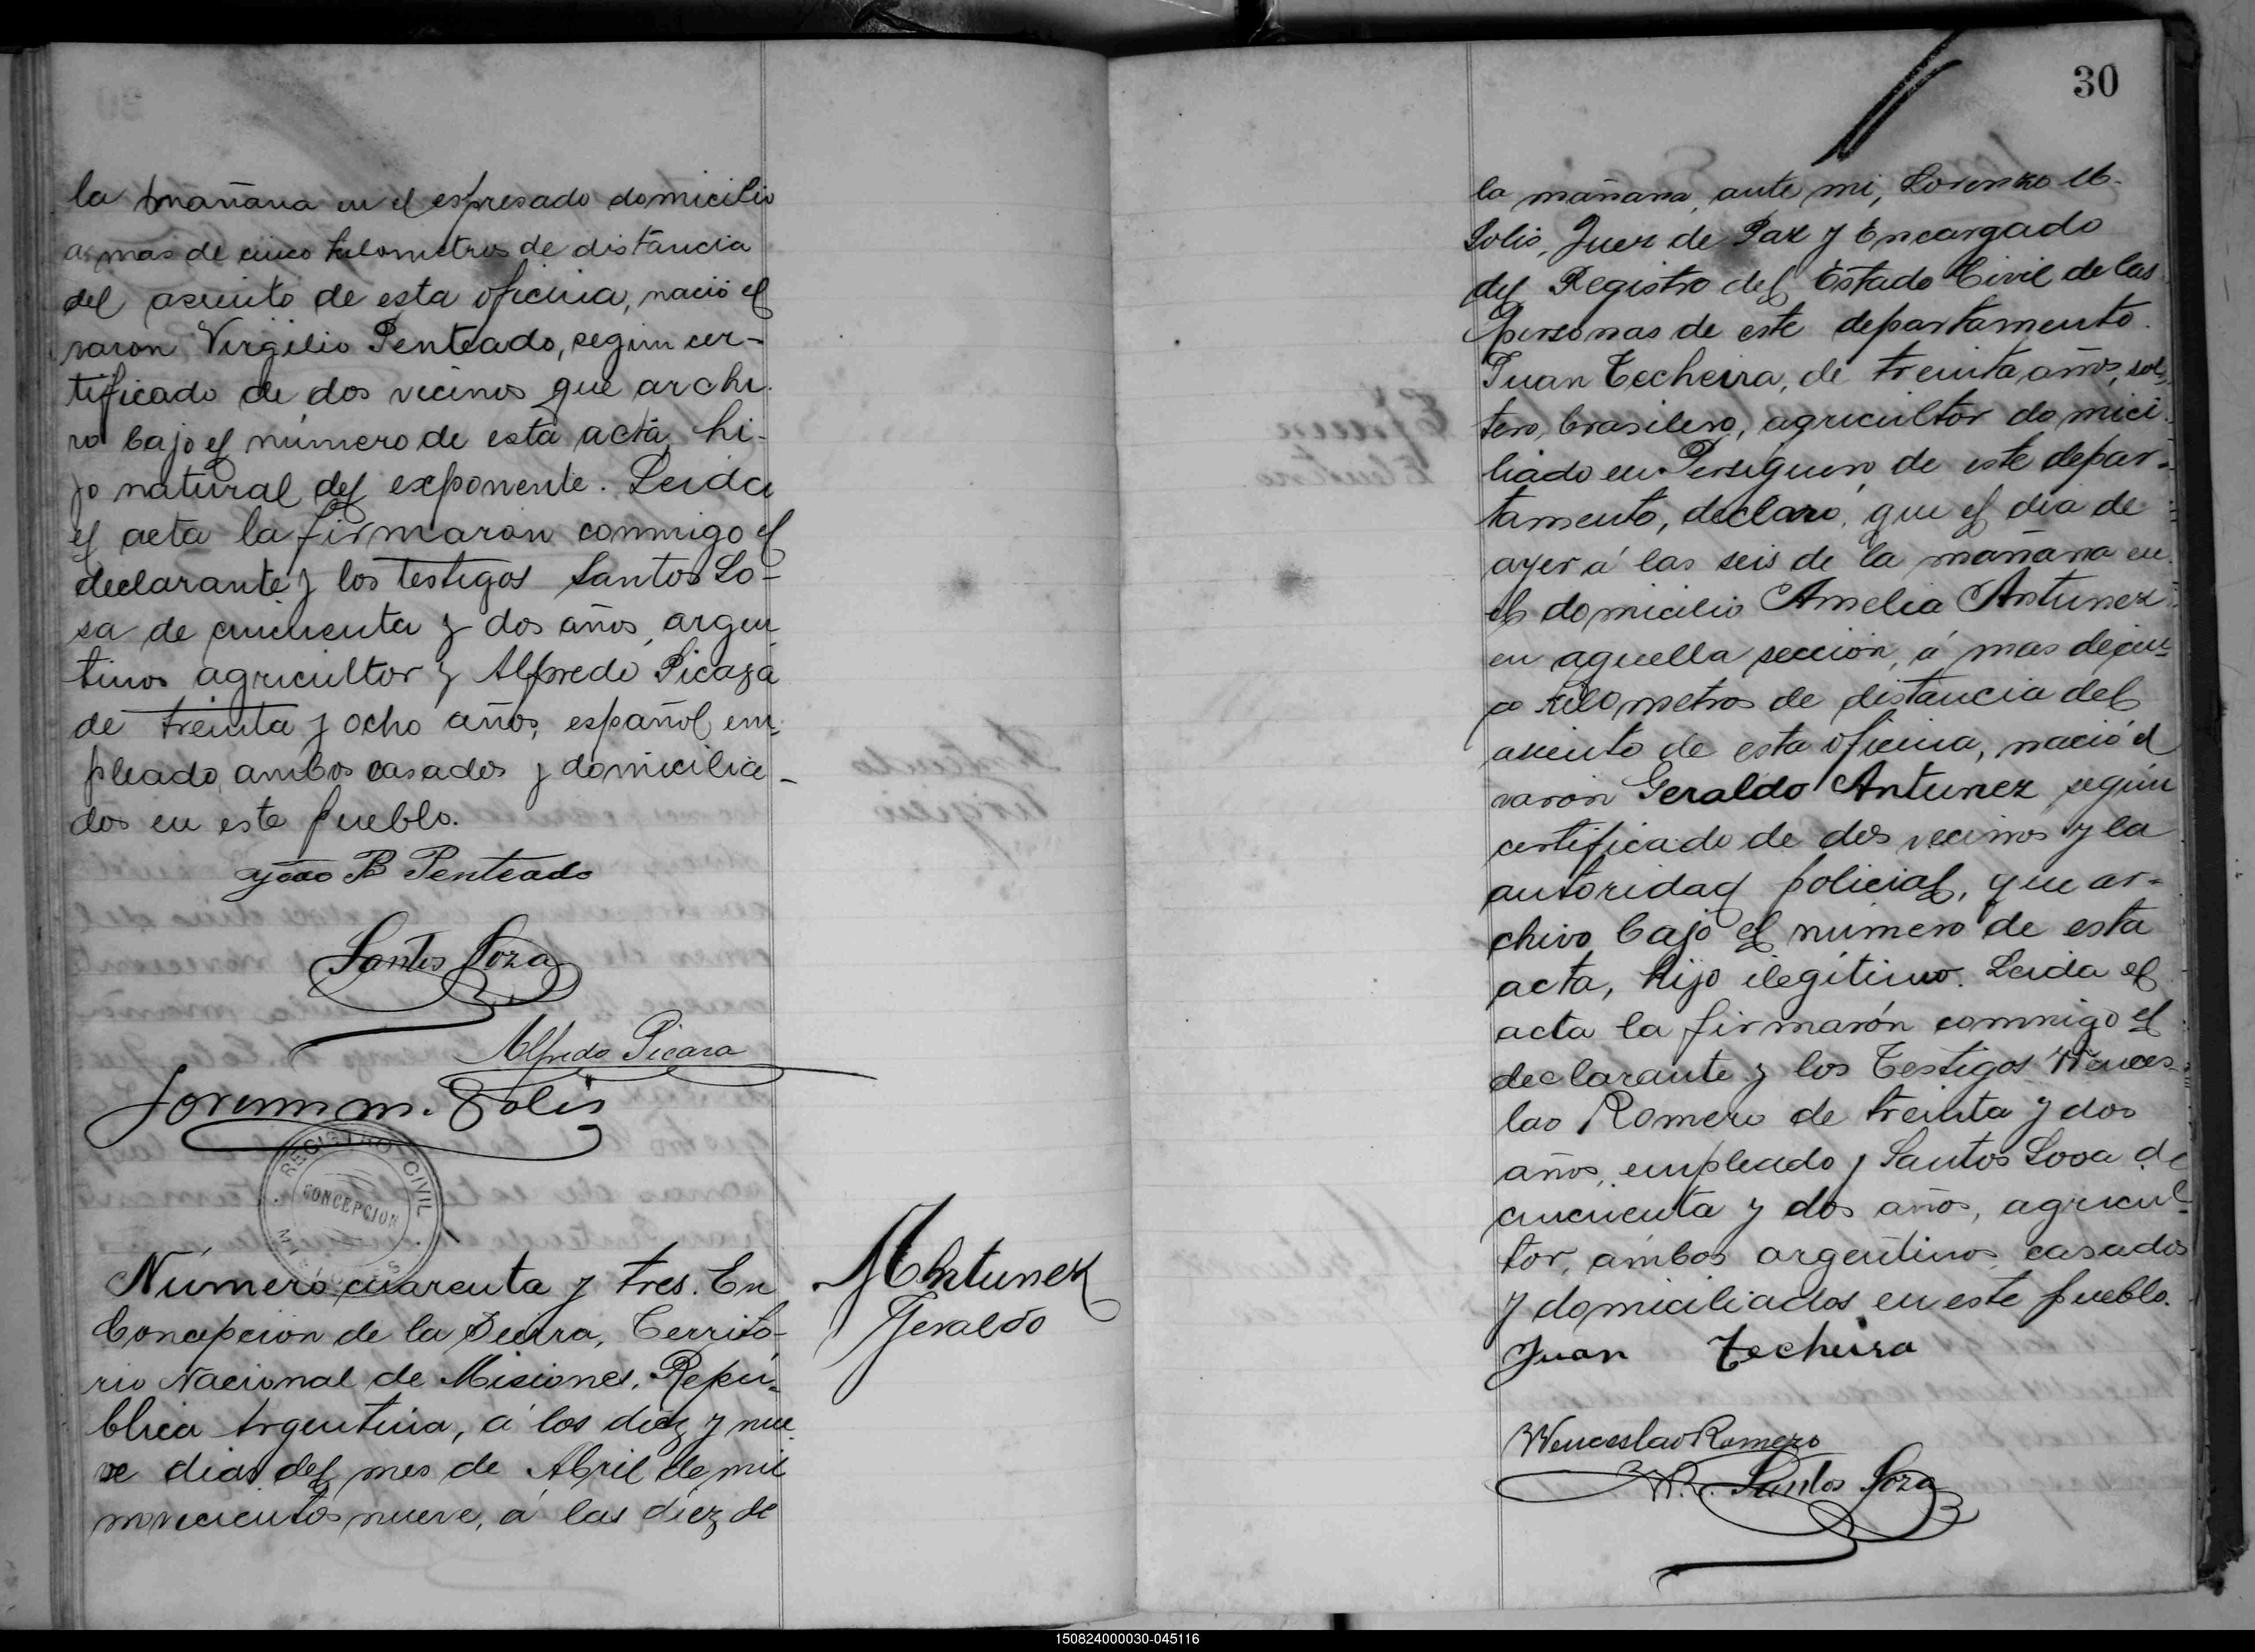 la mañana en el espresado domicilio
a mas de cinco kilometros de distancia
del asiento de esta oficina, nació el
varon Virgilio Penteado, segun cer-
tificado de dos vecinos que archi-
vo bajo el número de esta acta, hi-
jo natural del exponente. Leida
el acta la firmaron conmigo el
declarante y los testigos Santos Lo-
sa de cincuenta y dos años, argen
tino agricultor y Alfredo Picaza
de treinta y ocho años, español, em-
pleado, ambos casados y domicilia-
dos en este pueblo.
João B Penteado
Santos Loza
Alfredo Picaza
Lorenzo M. Solis
REGISTRO CIVIL
CONCEPCION
MISIONES
Número cuarenta y tres. En
Concepcion de la Sierra, Territo-
rio Nacional de Misiones, Repú-
blica Argentina, á los diez y nue-
ve dias del mes de Abril de mil
novecientos nueve, á las diez de
Antunez
Geraldo
30
la mañana, ante mi, Lorenzo M.
Solis, Juez de Paz y Encargado
del Registro del Estado Civil de las
personas de este departamento.
Juan Techeira, de treinta años, sol-
tero, brasilero, agricultor domici-
liado en Persiguero, de este depar-
tamento, declaró, que el dia de
ayer á las seis de la mañana en
el domicilio Amelia Antunez
en aquella sección, á mas de cin-
co kilometros de distancia del
asiento de esta oficina, nació el
varon Geraldo Antunez según
certificado de dos vecinos y la
autoridad policial, que ar-
chivo bajo el número de esta
acta, hijo ilegítimo. Leida el
acta la firmarón conmigo el
declarante y los Testigos Wences-
lao Romero de treinta y dos
años, empleado y Santos Losa de
cincuenta y dos años, agricul-
tor, ambos argentinos casados
y domiciliados en este pueblo.
Juan Techeira
Wenceslao Romero
Santos Loza
150824000030-045116